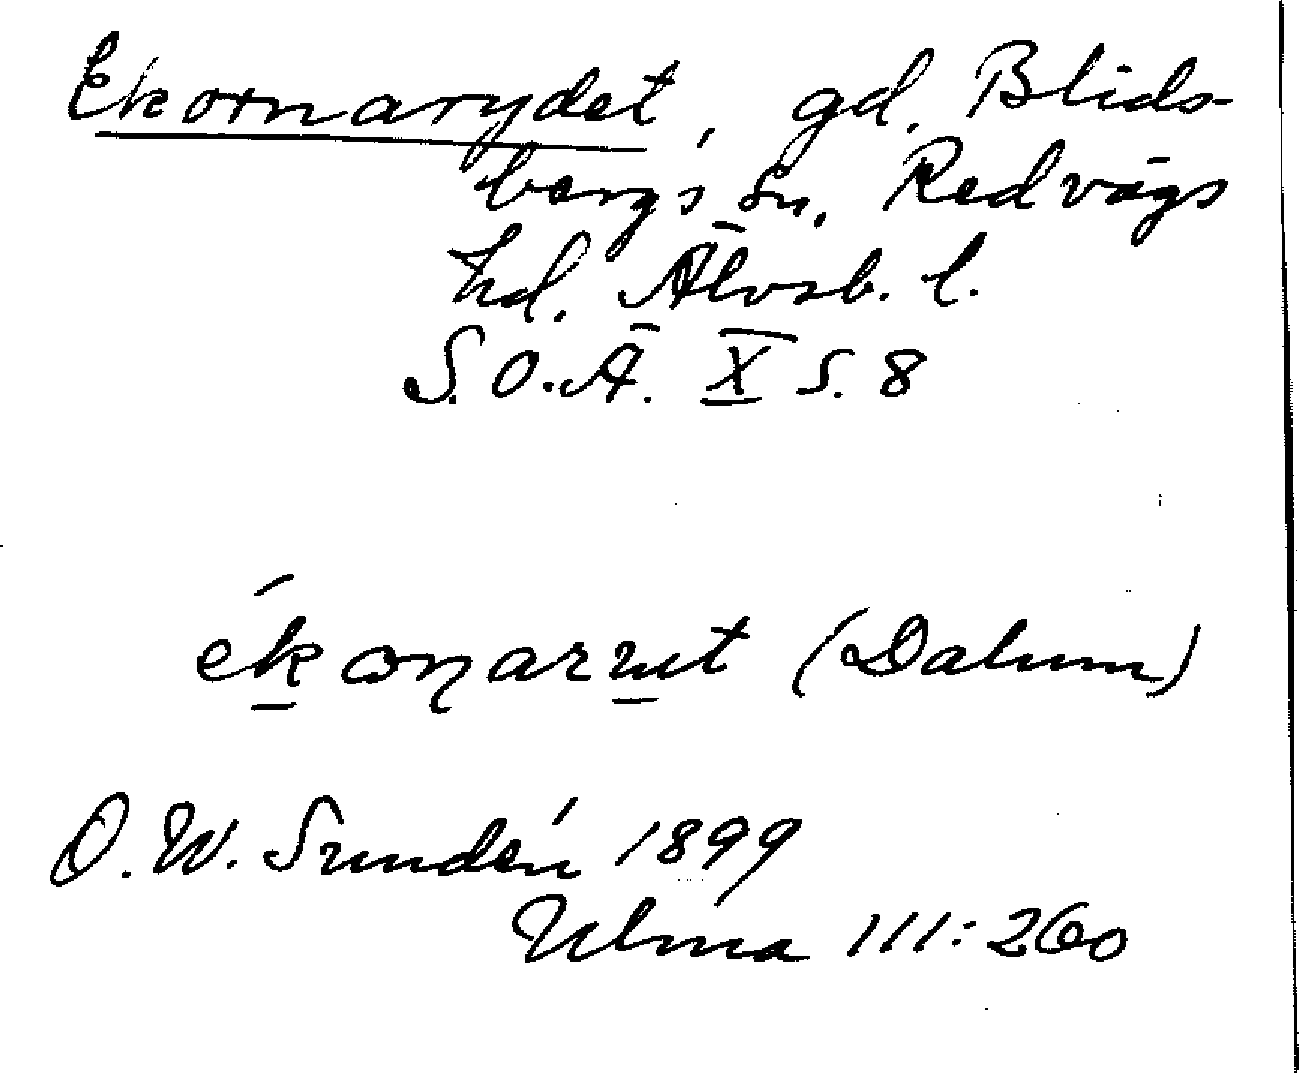 Ekornarydet, gd. Blids-
bergs sn. Redvägs
hd. Älvsb. l.
S.O.Ä. X s. 8
(Dalum)
O. W. Sundén 1899
Ulma 111:260